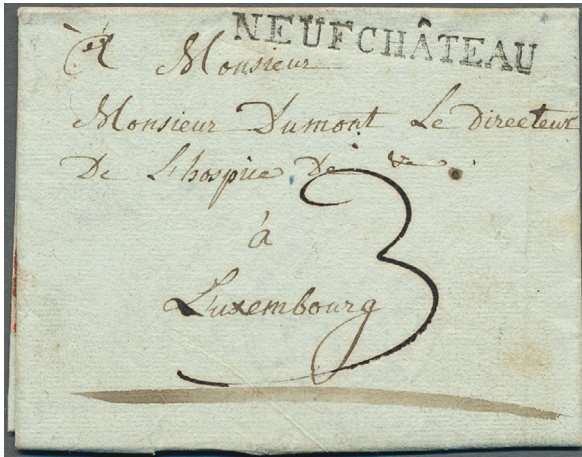 NEUFCHÂTEAU
à Monsieur
Monsieur Dumont Le Directeur
De L'hospice De
à
Luxembourg
3